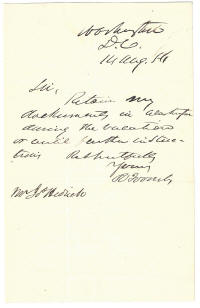 Washington
D.C.
14 Aug. 86
Sir,
Retain my
documents in
during the vacation
or until further instruc-
tions Respectfully
Yours